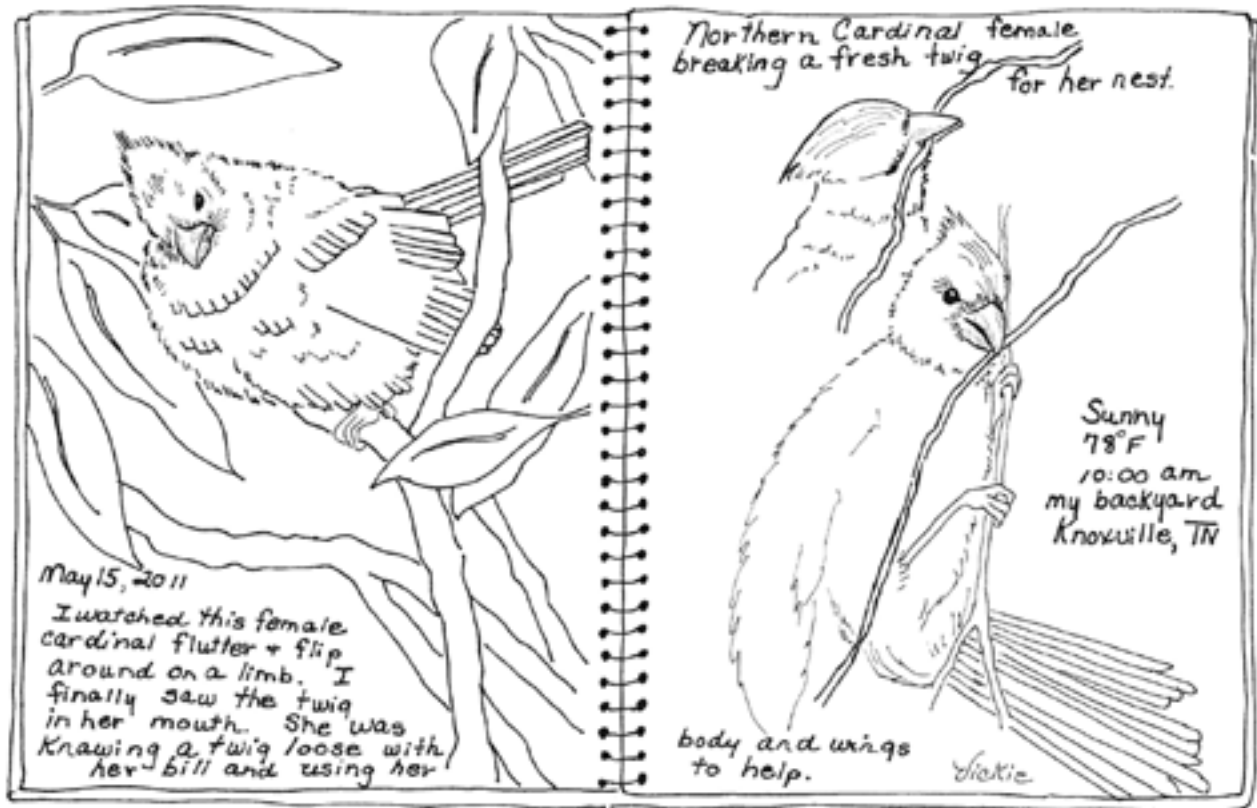 May 15, 2011
I watched this female
cardinal flutter + flip
around on a limb. I
finally saw the twig
in her mouth. She was
Knawing a twig loose with
her bill and using her
Northern Cardinal female
breaking a fresh twig
for her nest.
Sunny
78°F
10:00 am
my backyard
Knoxville, TN
body and wings
to help.
Vickie